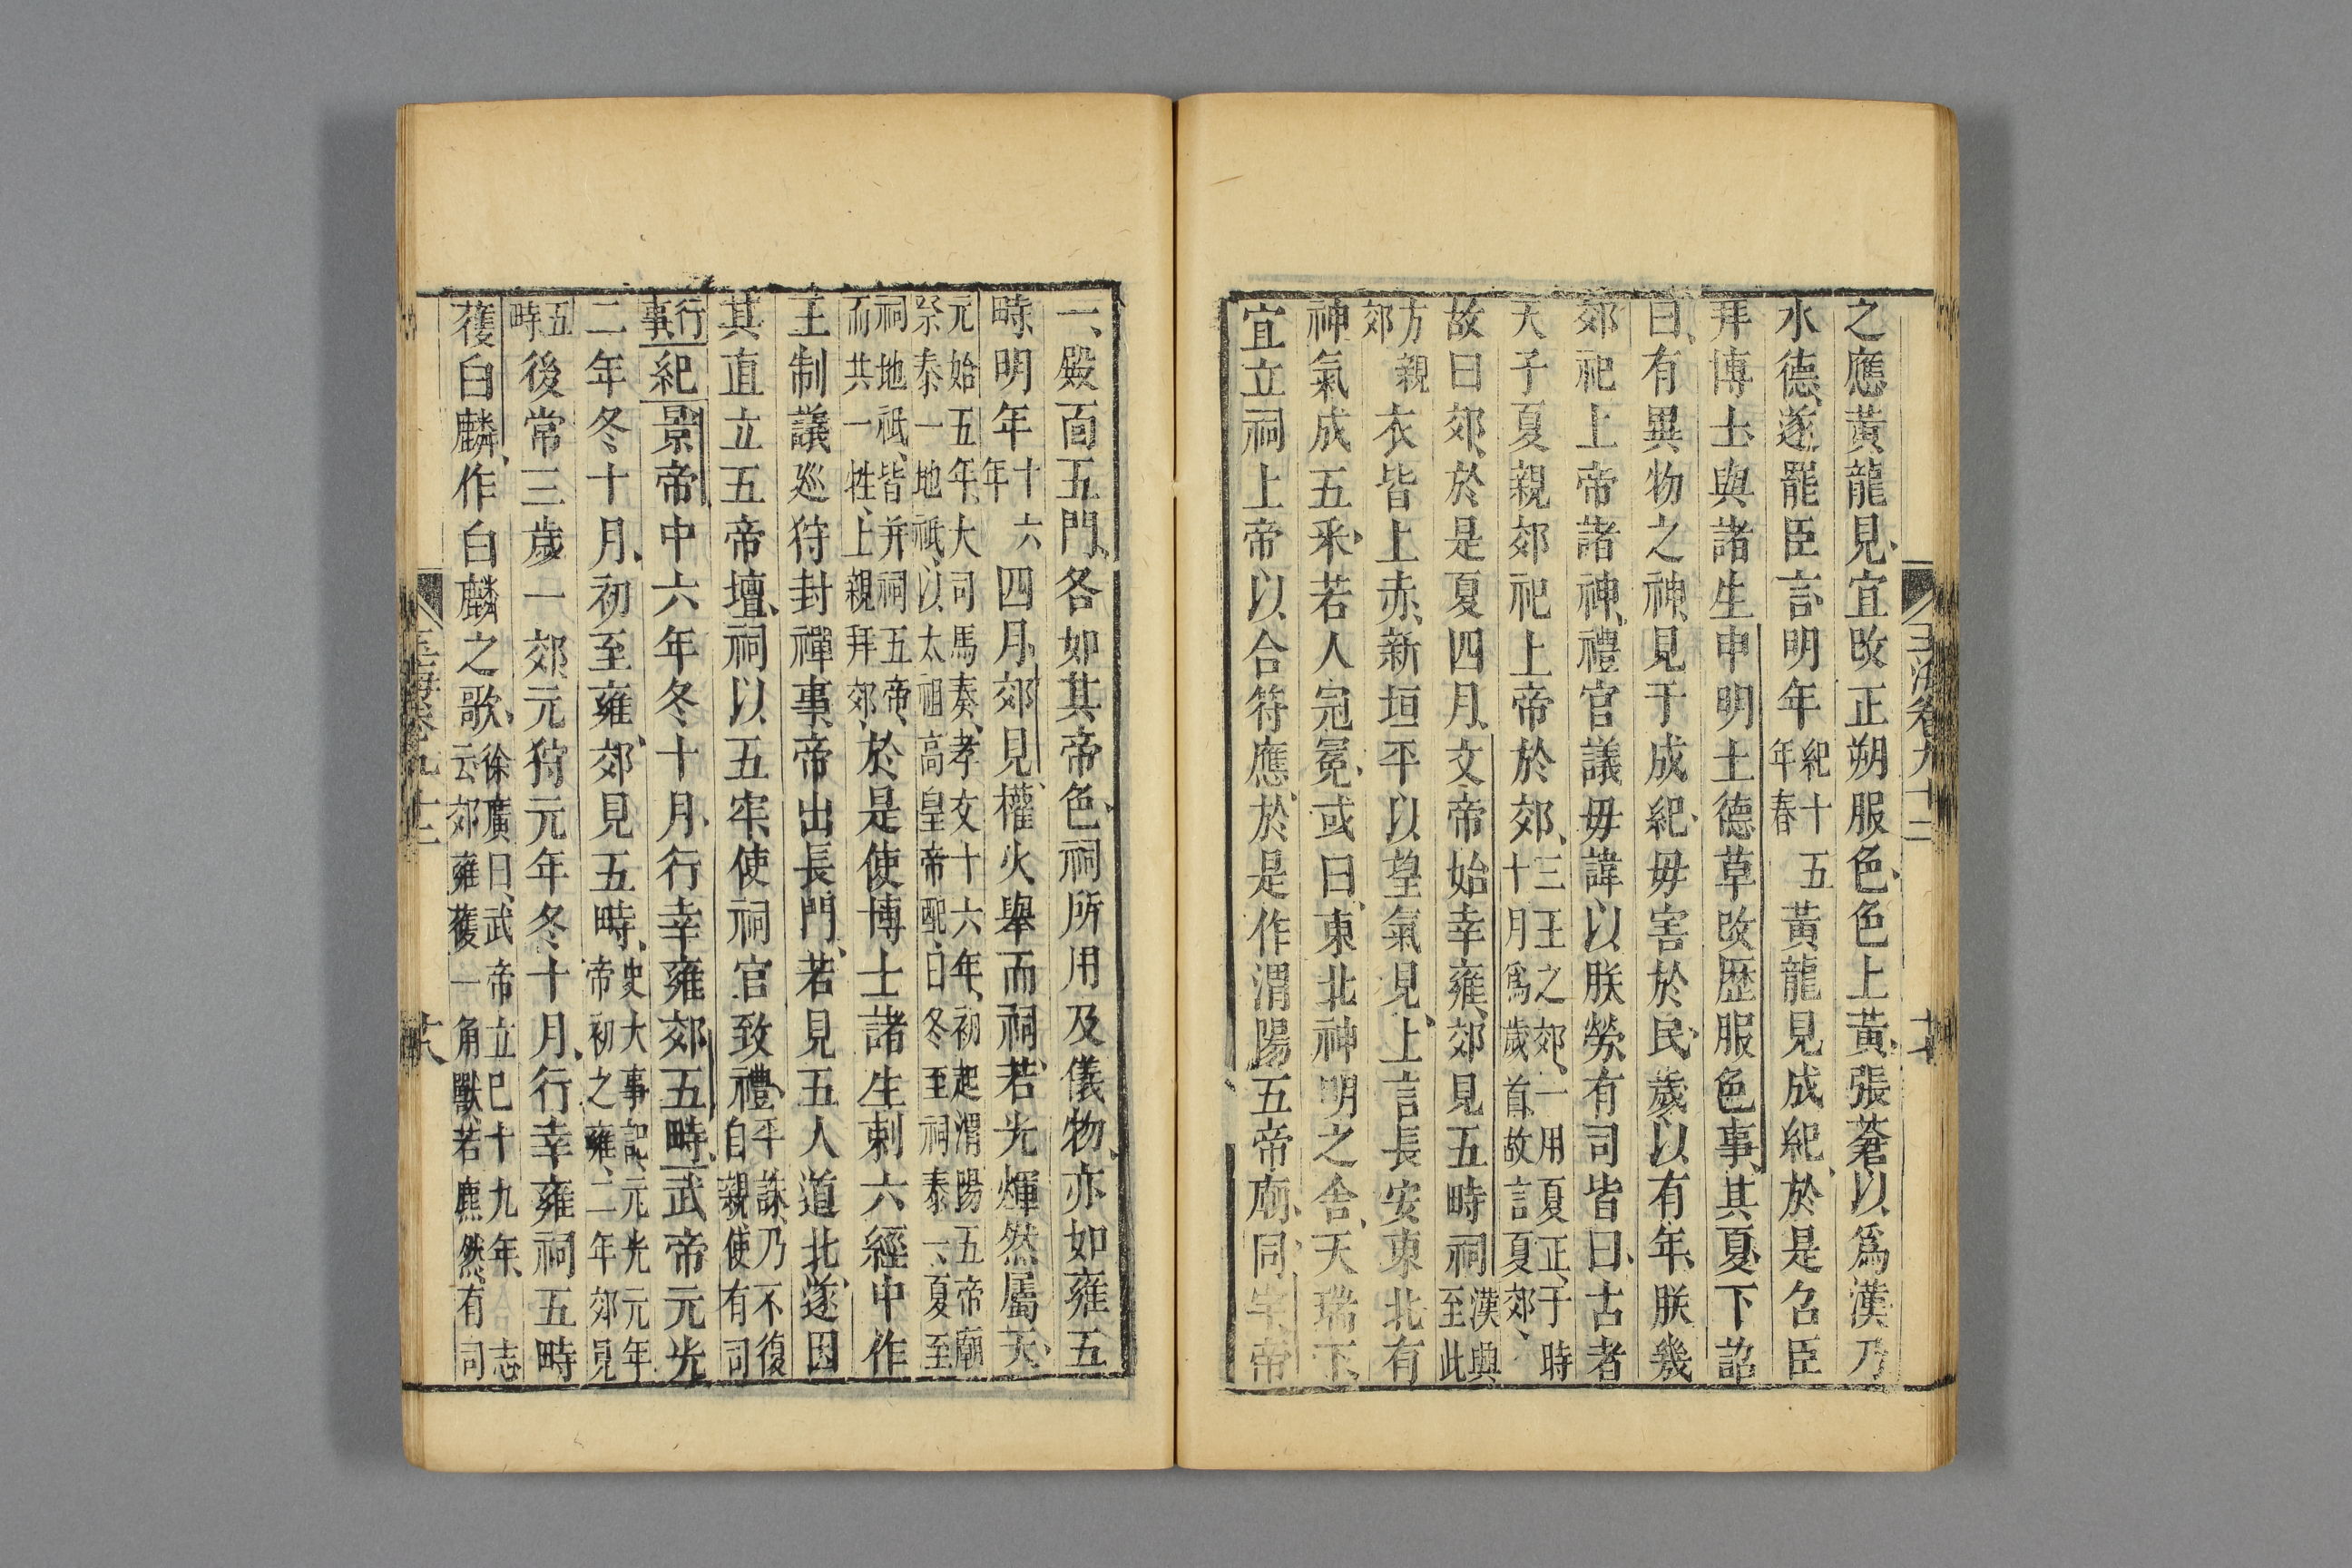 之應黃龍見宜改正朔服色色上黃張蒼以爲漢乃
水德遂罷臣言明年紀十五年春黃龍見成紀於是召臣
拜博士與諸生申明土德草改歷服色事其夏下詔
曰有異物之神見于成紀毋害於民歲以有年朕幾
郊祀上帝諸神禮官議毋諱以朕勞有司皆曰古者
天子夏親郊祀上帝於郊三王之郊一用夏正于時十月爲歲首故言夏郊
故曰郊於是夏四月文帝始幸雍郊見五畤祠漢興至此
方親郊衣皆上赤新垣平以望氣見上言長安東北有
神氣成五采若人冠冕或曰東北神明之舍天瑞下
宜立祠上帝以合符應於是作渭陽五帝廟同宇帝
玉海卷九十二 十七
一殿面五門各如其帝色祠所用及儀物亦如雍五
畤明年十六年四月郊見權火舉而祠若光煇然屬天
元始五年大司馬奏孝文十六年初起渭陽五帝廟祭泰一地祗以太祖高皇帝配日冬至祠泰一夏至
祠地祗皆并祠五帝而共一牲上親拜郊於是使博士諸生剌六經中作
王制議巡狩封禪事帝出長門若見五人道北遂因
其直立五帝壇祠以五牢使祠官致禮平誅乃不復自親使有司
行事紀景帝中六年冬十月行幸雍郊五畤武帝元光
二年冬十月初至雍郊見五畤史大事記元光元年帝初之雍二年郊見
五畤後常三歲一郊元狩元年冬十月行幸雍祠五畤
獲白麟作白麟之歌徐廣曰武帝立巳十九年志云郊雍獲一角獸若麃然有司
玉海卷九十二 十八